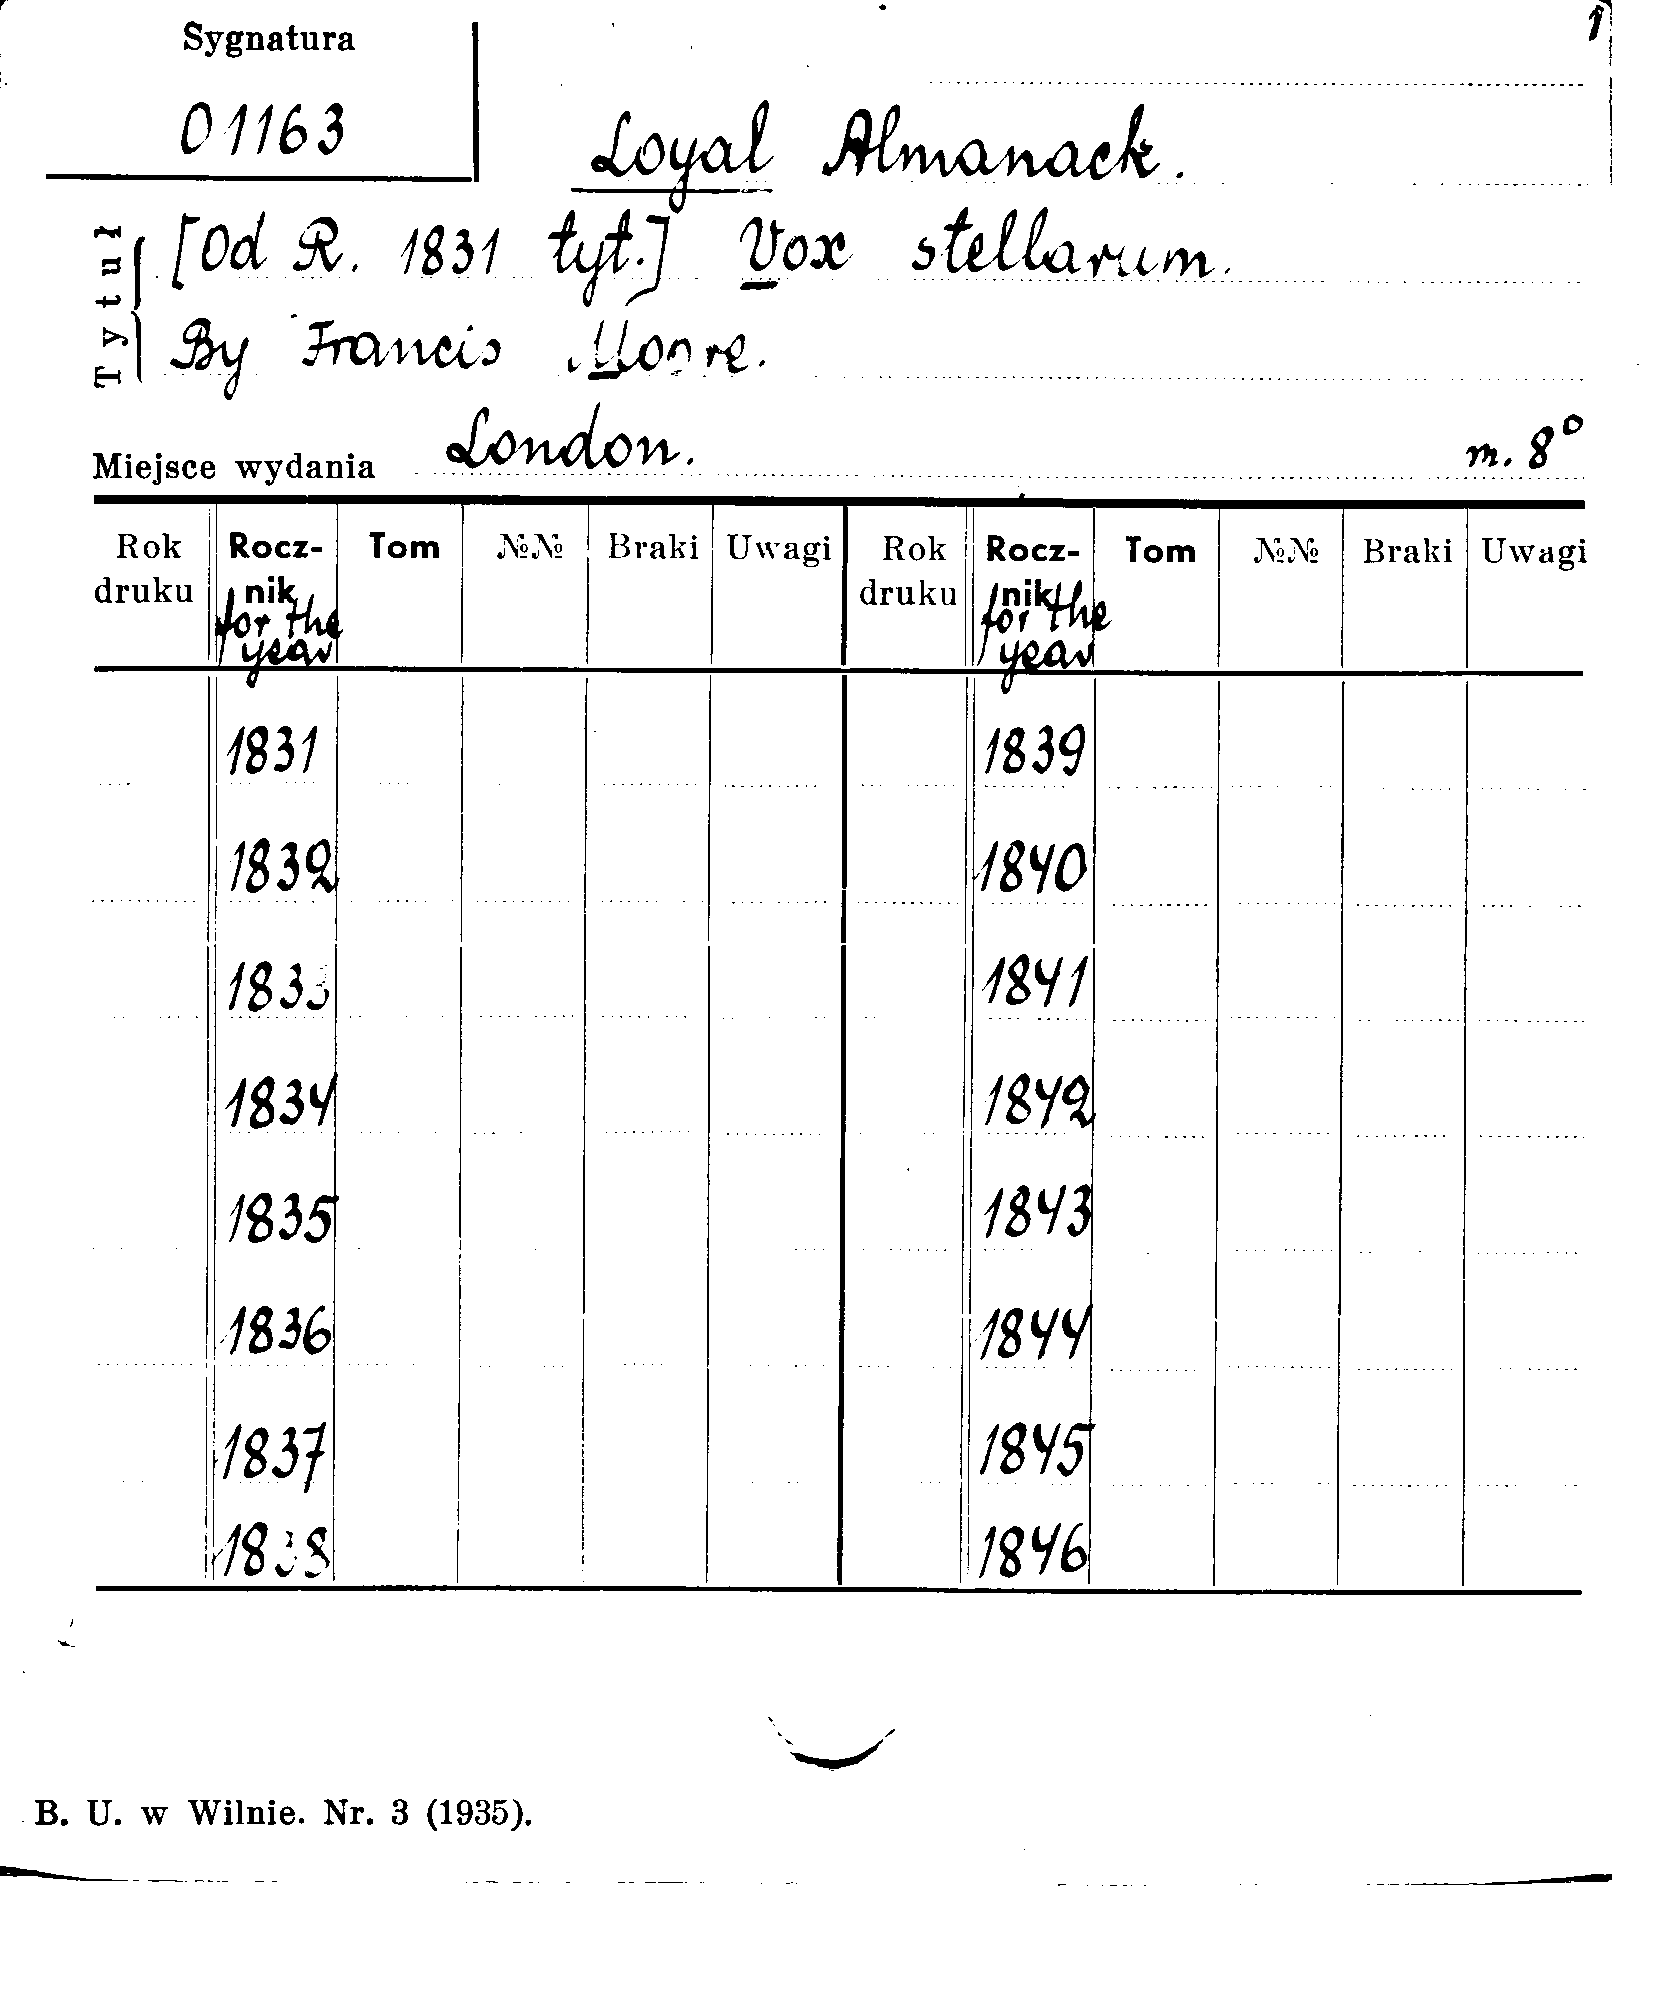 1
Sygnatura
01163
Loyal Almanack.
Tytuł
[Od R. 1831 tyt.] Vox stellarum.
By Francis Moore.
Miejsce wydania London. m. 8°
Rok druku Rocz-nik for the year Tom №№ Braki Uwagi Rok druku Rocz-nik for the year Tom №№ Braki Uwagi
1831 1839
1832 1840
1833 1841
1834 1842
1835 1843
1836 1844
1837 1845
1838 1846
B. U. w Wilnie. Nr. 3 (1935).